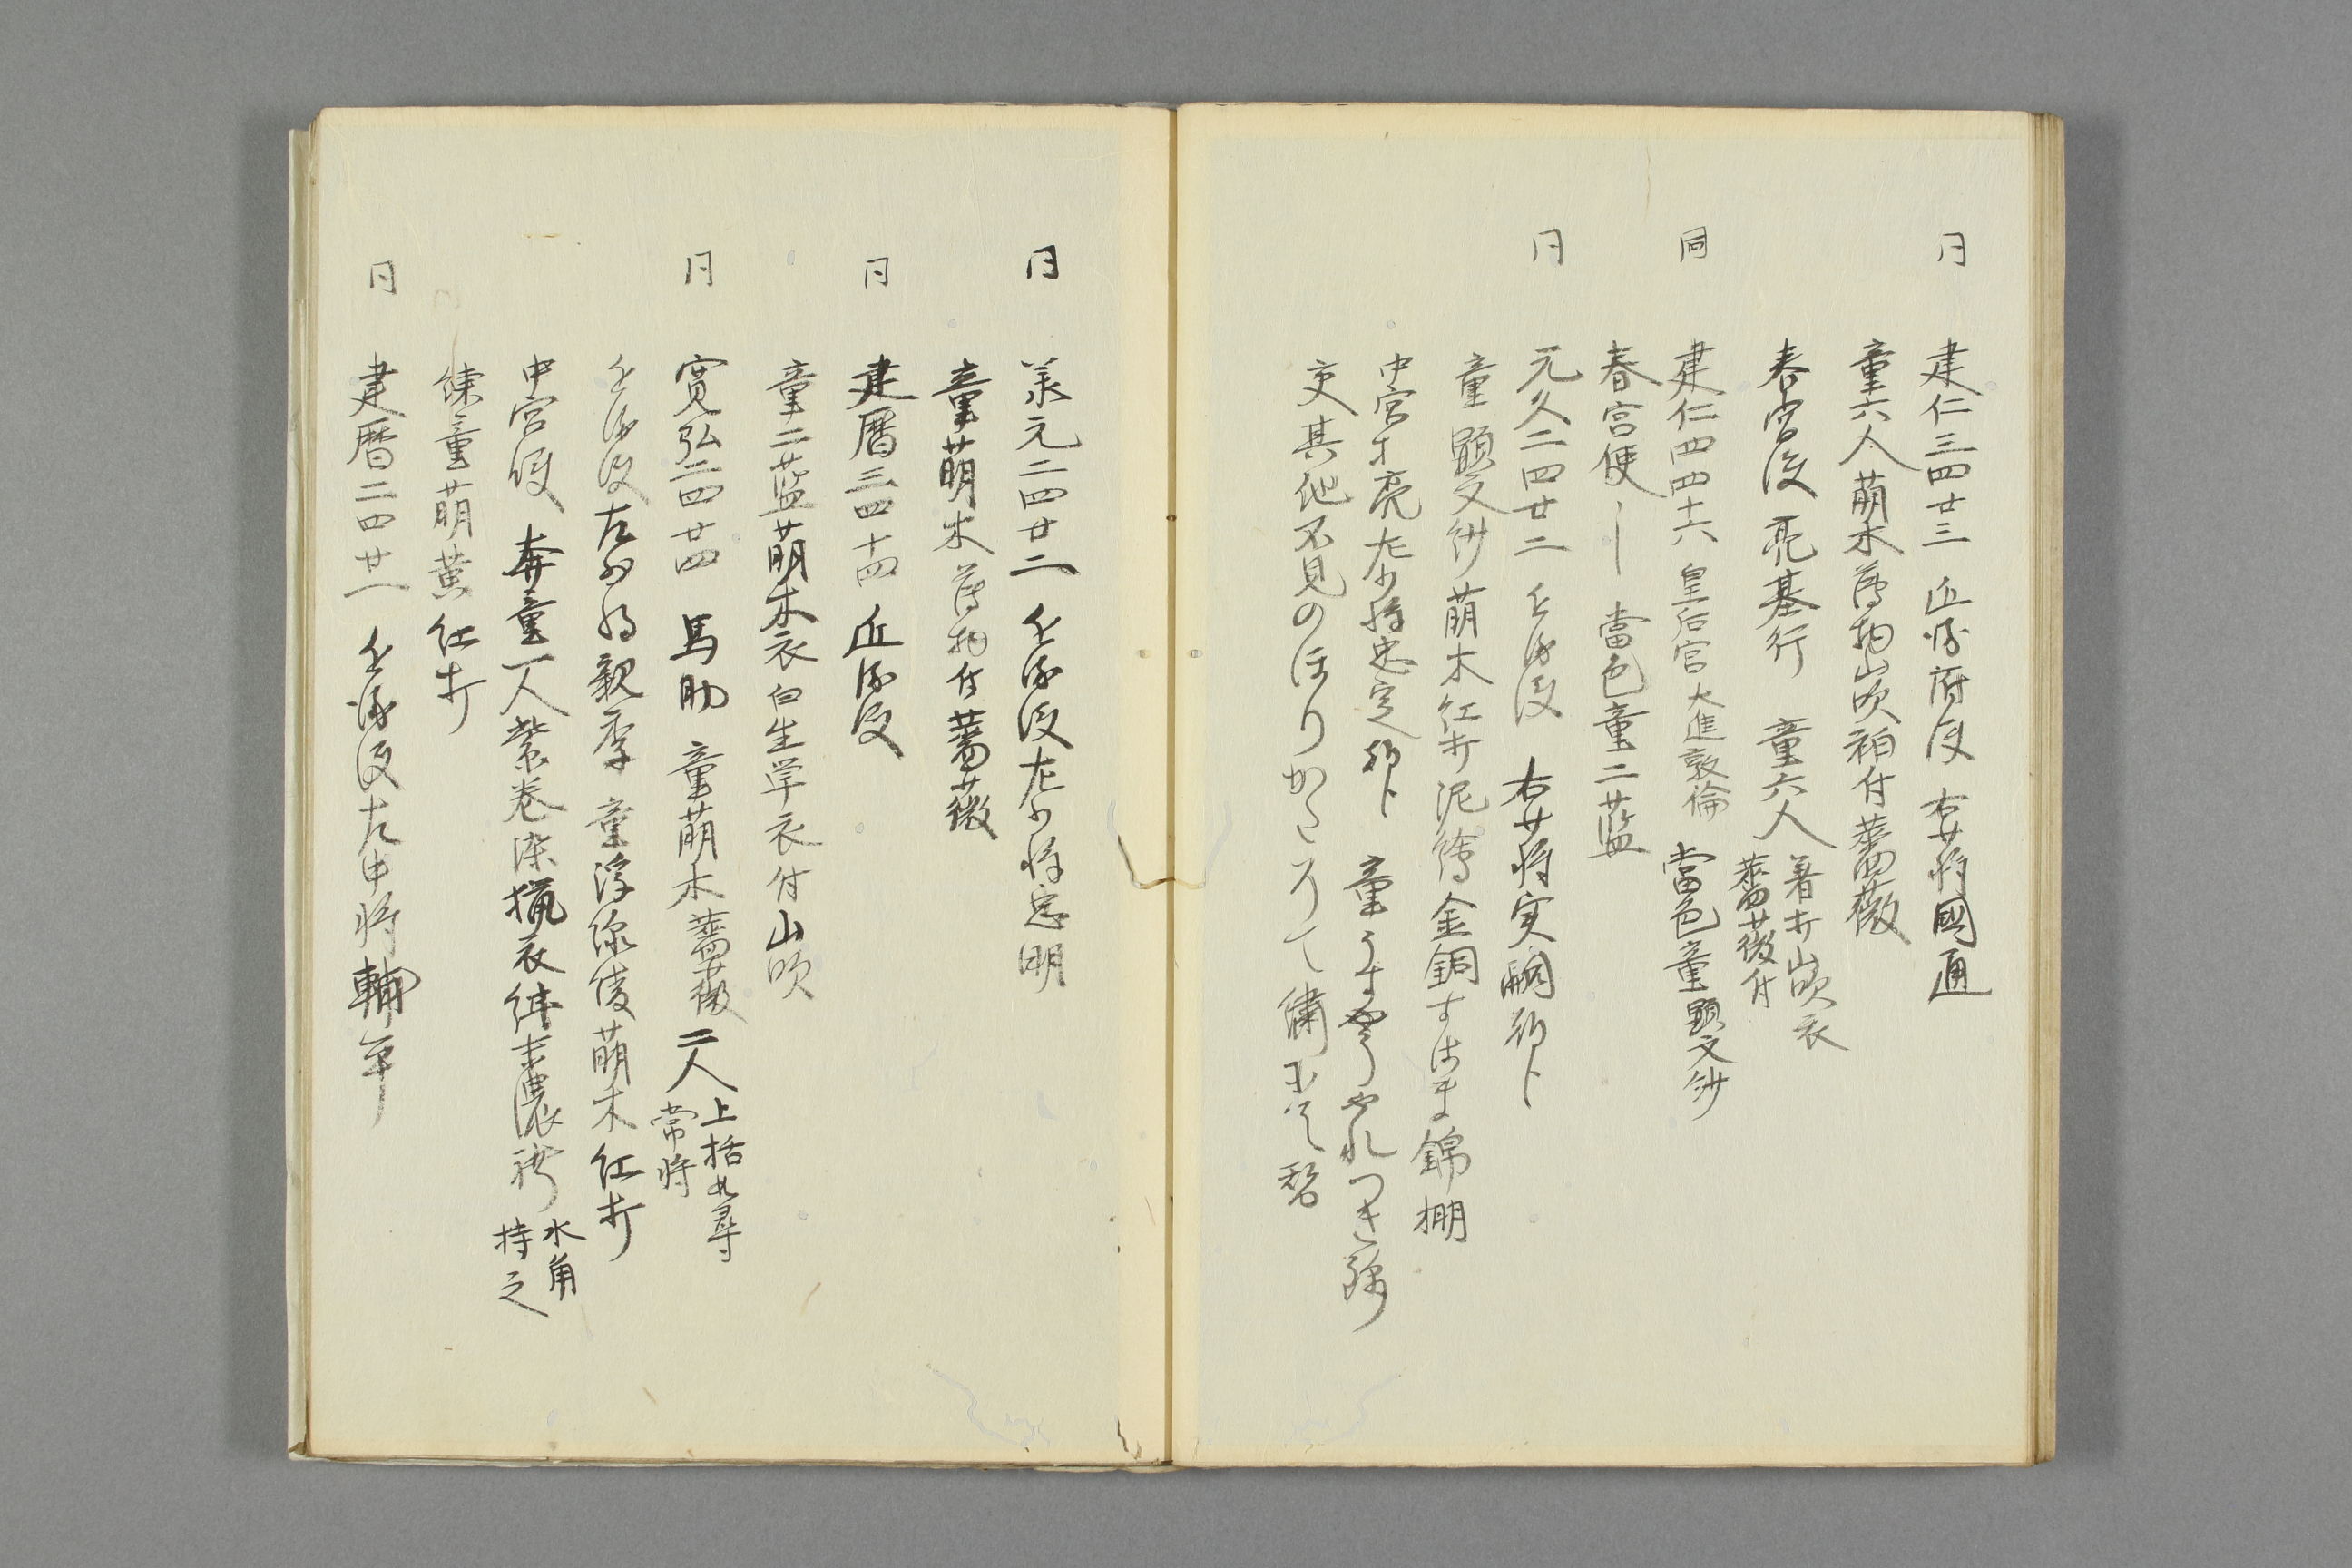 同 建仁三四廿三 近衛府使 右少将國通
童六人萌木薄物山吹衵付薔薇
春宮使 亮基行 童六人 著打山吹衣
薔薇付
同 建仁四四十六 皇后宮大進敦倫 當色童顕文紗
春宮使 當色童二藍
同 元久二四廿二 近衛使 右少将実嗣
童顕文紗萌木紅打泥繪金銅すはま錦棚
中宮 亮左少将忠定 童
文其他不見のほり
同 承元二四廿二 近衛使左少将忠明
童萌木薄物付薔薇
同 建暦三四十四 近衛使
童二藍萌木衣白生単衣付山吹
同 寛弘二四廿四 馬助 童萌木薔薇二人 上括
常将
近衛使左少将親季 童浮線綾萌木紅打
中宮使 奔童一人紫巻染狩衣 末濃袴 水角
持之
練童萌黄紅打
同 建暦二四廿一 近衛使左中将輔平